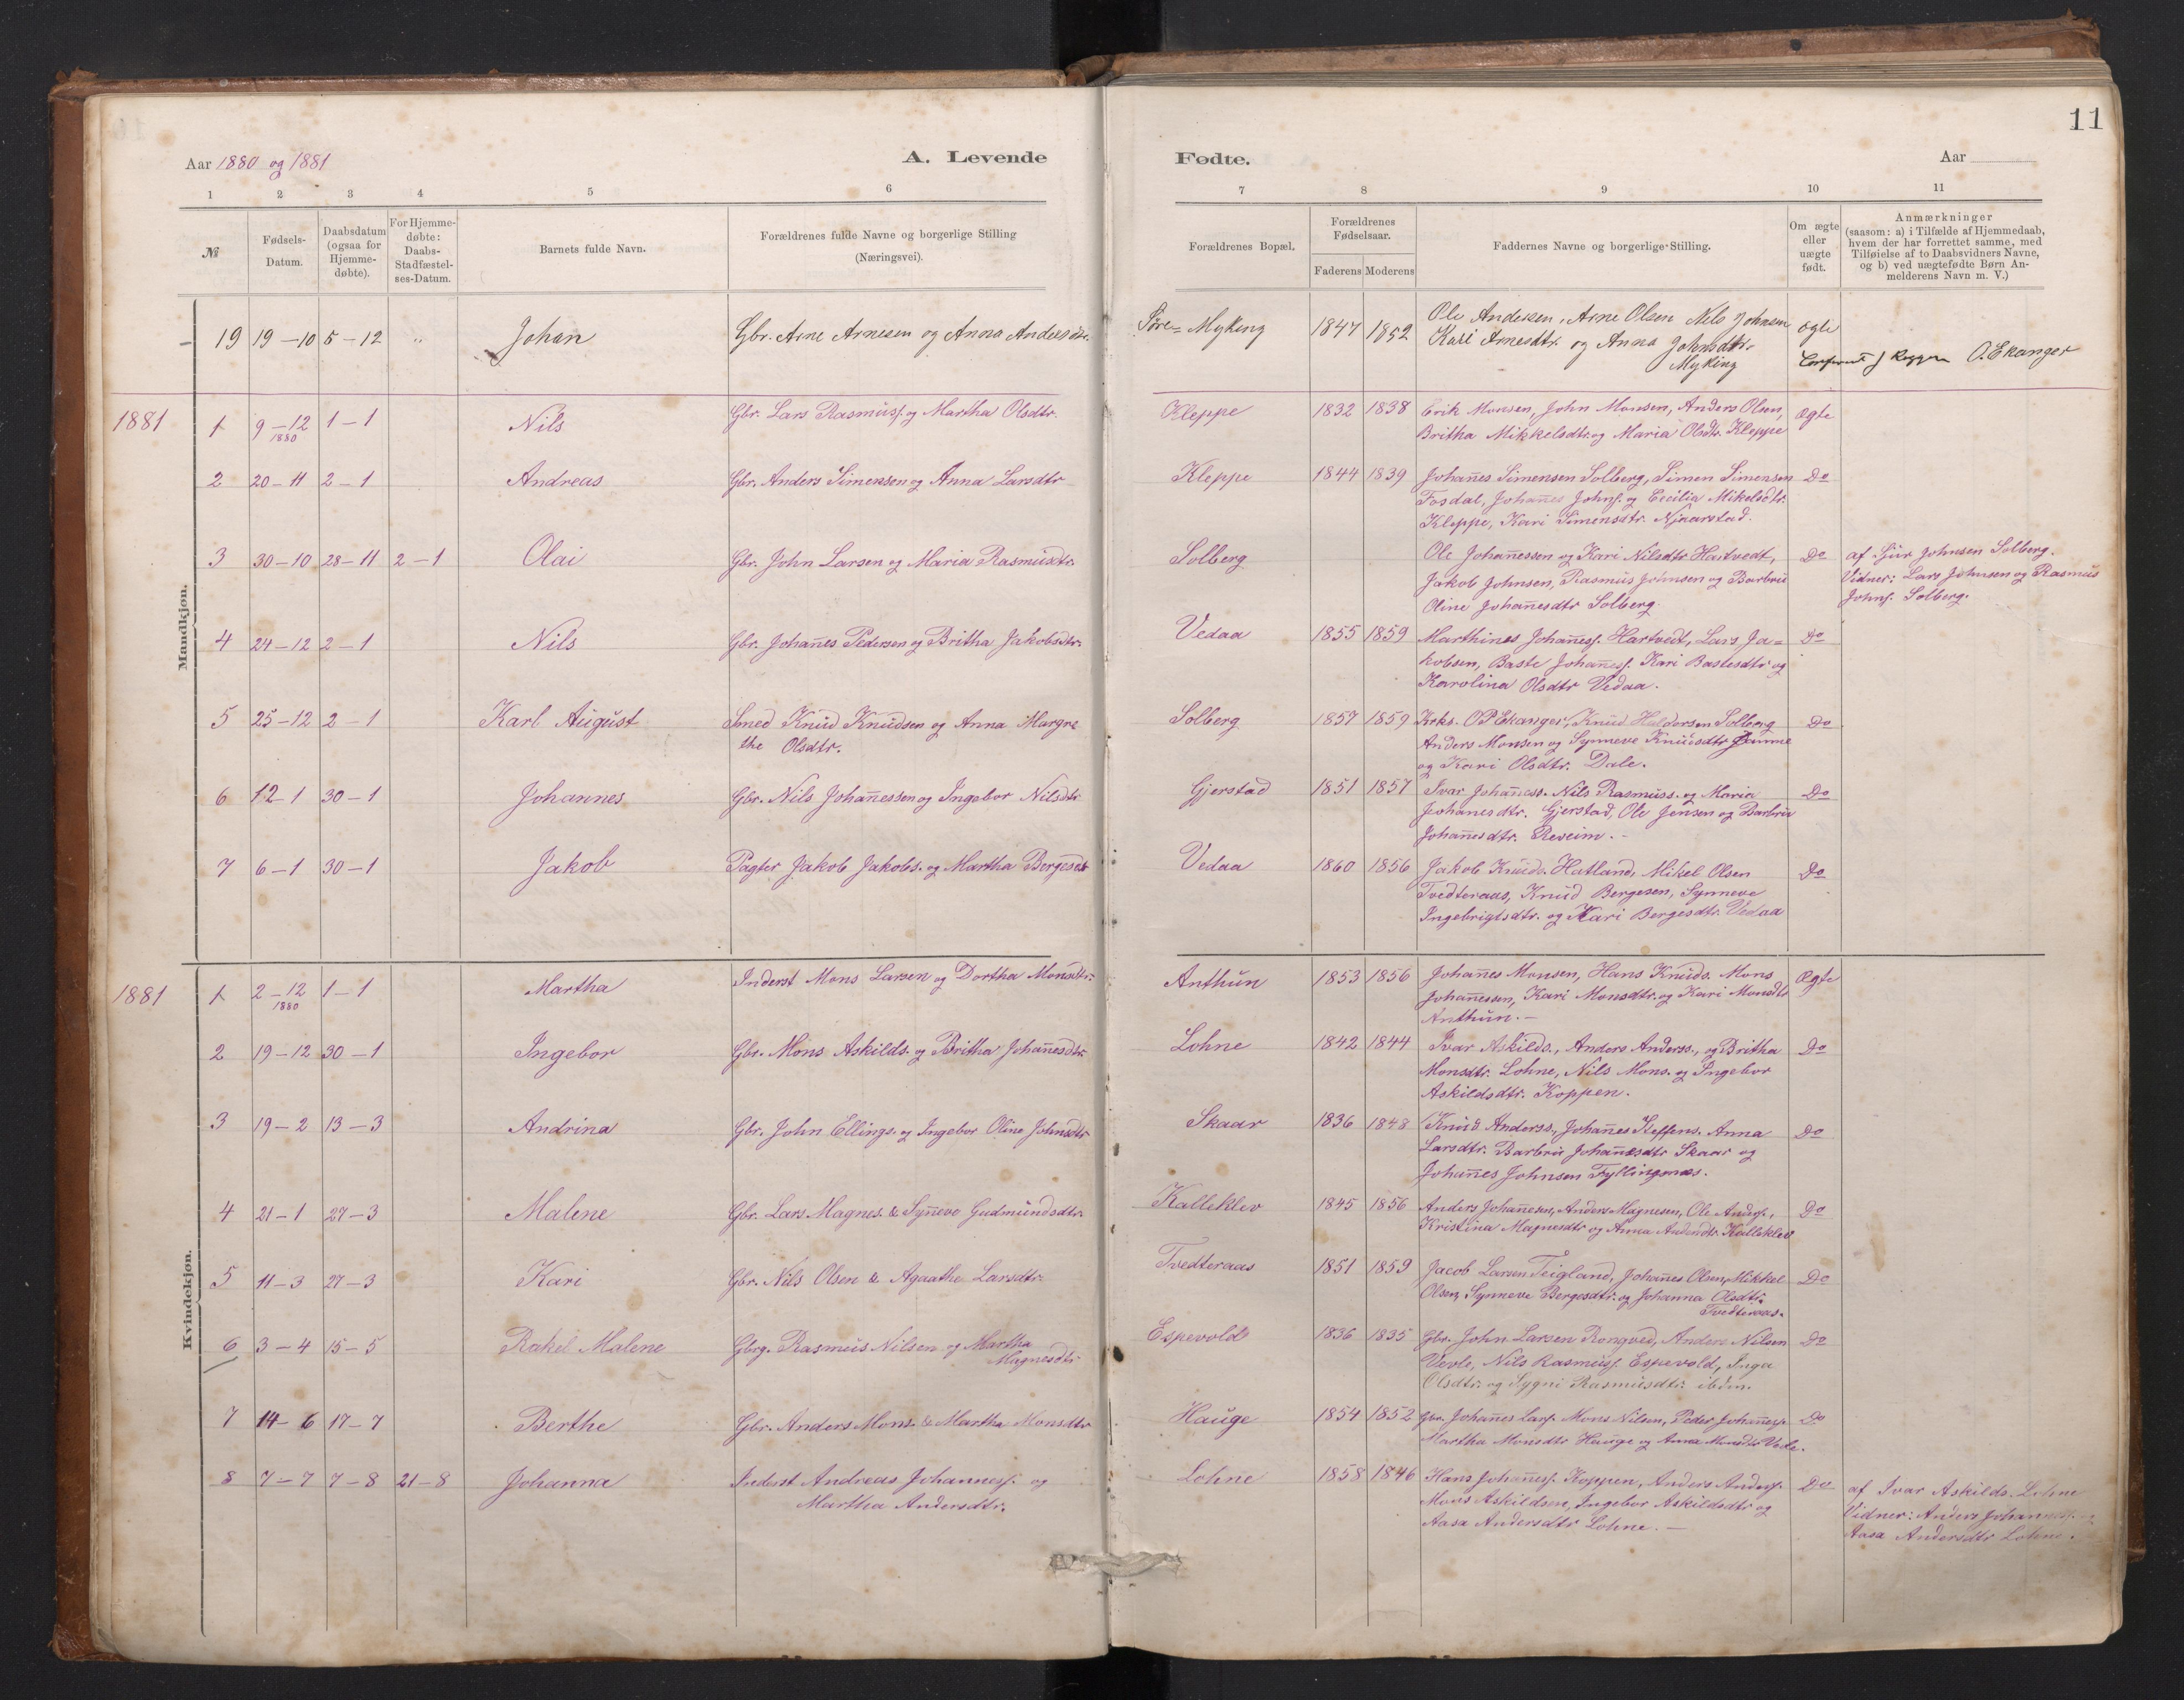 11
Aar 1880 og 1881
A. Levende
Fødte.
Aar
1 2 3 4 5 6 7 8 9 10 11
№
Fødsels-
Datum.
Daabsdatum
(ogsaa for
Hjemme-
døbte).
For Hjemme-
døbte:
Daabs-
Stadfæstel-
ses-Datum.
Barnets fulde Navn.
Forældrenes fulde Navne og borgerlige Stilling
(Næringsvei).
Forældrenes Bopæl.
Forældrenes
Fødselsaar.
Faderens Moderens
Faddernes Navne og borgerlige Stilling.
Om ægte
eller
uægte
født.
Anmærkninger
(saasom: a) i Tilfælde af Hjemmedaab,
hvem der har forrettet samme, med
Tilføielse af to Daabsvidners Navne,
og b) ved uægtefødte Børn An-
melderens Navn m. V.)
Mandkjøn.
19 19-10 5-12 " Johan Gbr. Arne Arnesen og Anna Andersdtr. Søre= Myking 1847 1852 Ole Andersen, Arne Olsen Nils Johnsen ægte
Kari Arnesdtr. og Anna Johnsdtr.
Myking
O. Ekanger
1881 1 9-12 1-1 Nils Gbr. Lars Rasmusf. og Martha Olsdtr. Kleppe 1832 1838 Erik Monsen, John Monsen, Anders Olsen, Ægte
1880
Britha Mikkelsdtr. og Maria Olsdtr. Kleppe
2 20-11 2-1 Andreas Gbr. Anders Simensen og Anna Larsdtr Kleppe 1844 1839 Johan̄es Simensen Solberg, Simen Simensen Do
Fosdal, Johan̄es Johnf. og Cecilia Mikelsdtr.
Kleppe, Kari Simensdtr. Njaarstad.
3 30-10 28-11 2-1 Olai Gbr. John Larsen og Maria Rasmusdtr. Solberg Ole Johan̄essen og Kari Nilsdtr Hartvedt, Do af Sjur Johnsen Solberg.
Jakob Johnsen, Rasmus Johnsen og Barbru Vidner: Lars Johnsen og Rasmus
Oline Johan̄esdtr Solberg. Johnf. Solberg.
4 24-12 2-1 Nils Gbr. Johan̄es Pedersen og Britha Jakobsdtr. Vedaa 1855 1859 Marthines Johan̄esf. Hartvedt, Lars Ja= Do
kobsen, Baste Johan̄esf. Kari Bastesdtr og
Karolina Olsdtr Vedaa.
5 25-12 2-1 Karl August Smed Knud Knudsen og Anna Margre Solberg 1857 1859 Krks. O P Ekanger, Knud Haldorsen Solberg Do
the Olsdtr. Anders Monsen og Synneve Knudsdtr
og Kari Olsdtr. Dale.
6 12-1 30-1 Johannes Gbr. Nils Johan̄essen og Ingebor Nilsdtr Gjerstad 1851 1857 Ivar Johan̄ess. Nils Rasmuss. og Maria Do
Johanesdtr. Gjerstad, Ole Jensen og Barbru
Johan̄esdtr. Reveim.-
7 6-1 30-1 Jakob Pagter Jakob Jakobs. og Martha Bergesdtr Vedaa 1860 1856 Jakob Knuds. Hatland, Mikel Olsen Do
Tvedteraas, Knud Bergesen, Synneve
Ingebrigtsdtr. og Kari Bergesdtr. Vedaa
Kvindekjøn.
1881 1 2-12 1-1 Martha Inderst Mons Larsen og Dortha Monsdtr. Anthun 1853 1856 Johan̄es Monsen, Hans Knuds. Mons Ægte
1880
Johan̄essen, Kari Monsdtr. og Kari Monsdtr
Anthun.-
2 19-12 30-1 Ingebor Gbr. Mons Askilds. og Britha Johan̄esdtr. Lohne 1842 1844 Ivar Askilds., Anders Anderss., og Britha Do
Monsdtr. Lohne, Nils Mons. og Ingebor
Askildsdtr. Koppen.
3 19-2 13-3 Andrina Gbr. John Ellings. og Ingebor Oline Johnsdtr Skaar 1836 1848 Knud Anderss., Johan̄es Steffens. Anna Do
Larsdtr. Barbru Johan̄esdtr Skaar og
Johan̄es Johnsen Fyllingsnæs.
4 21-1 27-3 Malene Gbr. Lars Magnes. & Syn̄eve Gudmundsdtr. Kalleklev 1845 1856 Anders Johan̄esen, Anders Magnesen, Ole Andrsf., Do
Kristina Magnesdtr og Anna Andersdtr Kalleklev
5 11-3 27-3 Kari Gbr. Nils Olsen & Agaathe Larsdtr. Tvedteraas 1851 1859 Jacob Larsen Teigland, Johan̄es Olsen, Mikkel Do
Olsen, Synneve Bergesdtr. og Johanna Olsdtr.
Tvedteraas.
6 3-4 15-5 Rakel Malene Gbrg. Rasmus Nilsen og Martha Espevold 1836 1835 Gbr. John Larsen Rongved, Anders Nilsen Do
Magnesdtr Vevle, Nils Rasmusf. Espevold, Inga
Olsdtr. og Sygni Rasmusdtr. ibdm.
7 14-6 17-7 Berthe Gbr. Anders Mons. & Martha Monsdtr Hauge 1854 1852 Gbr. Johan̄es Larsf. Mons Nilsen, Peder Johan̄esf. Do
Martha Monsdtr Hauge og Anna Monsdtr
8 7-7 7-8 21-8 Johanna Inderst Andreas Johannesf. og Lohne 1858 1846 Hans Johan̄esf. Koppen, Anders Andersf. Do af Ivar Askilds. Lohne
Martha Andersdtr. Mons Askildsen, Ingebor Askildsdtr og Vidner: Anders Johannesf. og
Aasa Andersdtr Lohne.- Aasa Andersdtr Lohne.